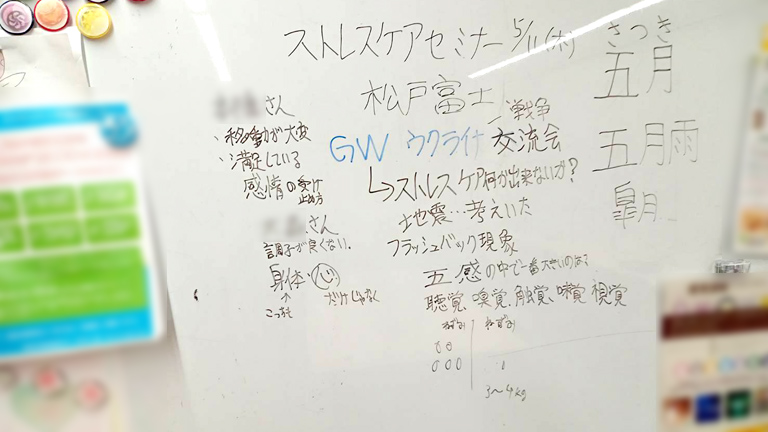 ストレスケアセミナー 5/11(木)
さつき
五月
五月雨
皐月
松戸富士
GW ウクライナ 戦争
交流会
↳ストレスケア何か出来ないか?
地震…考えいた
フラッシュバック現象
五感の中で一番大きいのは?
聴覚、嗅覚、触覚、味覚、視覚
3〜4kg
さん
・移動が大変
・満足している
感情の受け止め方
さん
調子が良くない。
身体・心
だけじゃなく
↑
こっちも